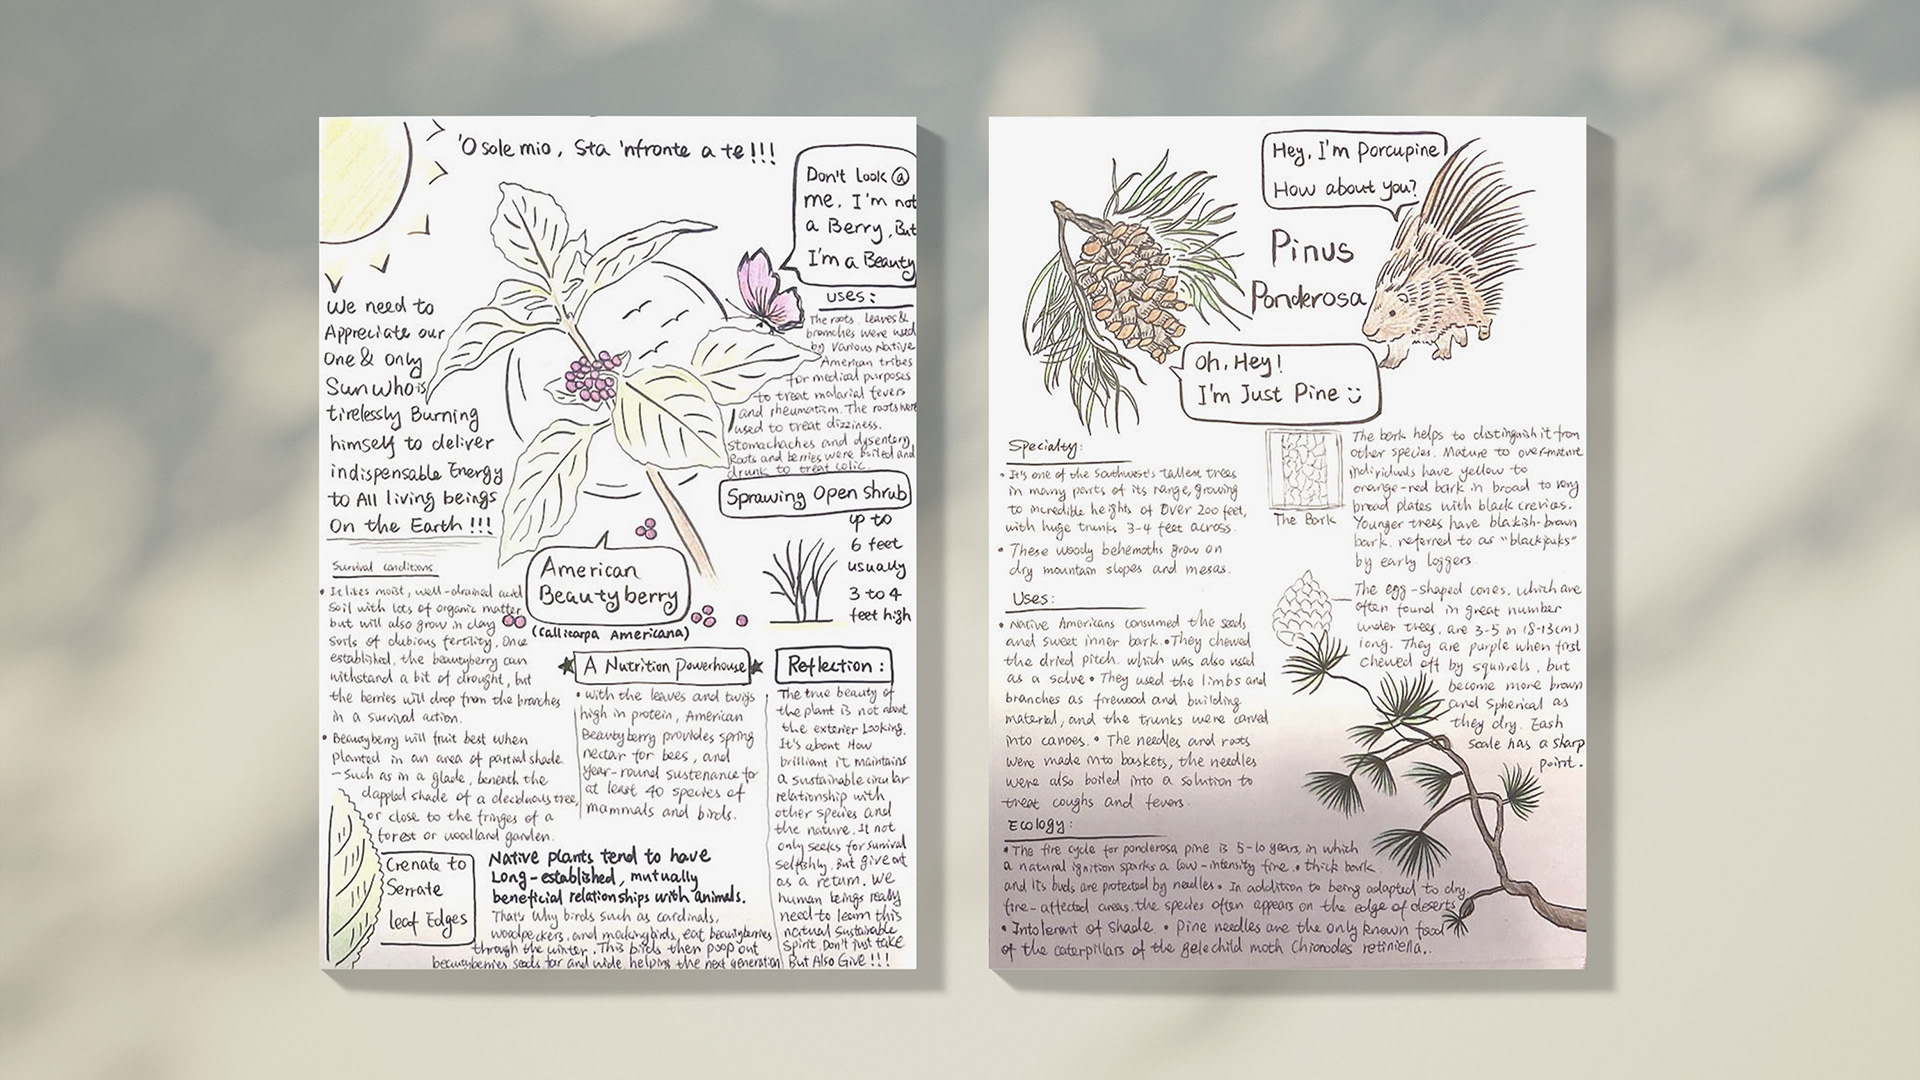 'O sole mio, Sta 'nfronte a te!!!
Don't look @
me, I'm not
a Berry, But
I'm a Beauty
We need to
Appreciate our
One & Only
Sun who is
tirelessly Burning
himself to deliver
indispensable Energy
to All living beings
On the Earth!!!
Uses:
The roots, leaves &
branches were used
by various Native
American tribes
for medical purposes
to treat malarial fevers
and rheumatism. The roots were
used to treat dizziness,
stomachaches and dysentery.
Roots and berries were boiled and
drunk to treat colic.
Sprawing Open Shrub
up to
6 feet
usually
3 to 4
feet high
American
Beautyberry
(Callicarpa Americana)
Survival conditions
• It likes moist, well-drained acid
soil with lots of organic matter
but will also grow in clay
soils of dubious fertility. Once
established, the beautyberry can
withstand a bit of drought, but
the berries will drop from the branches
in a survival action.
• Beautyberry will fruit best when
planted in an area of partial shade
- such as in a glade, beneath the
dappled shade of a deciduous tree,
or close to the fringes of a
forest or woodland garden.
Crenate to
Serrate
leaf Edges
★ A Nutrition Powerhouse ★
• with the leaves and twigs
high in protein, American
Beautyberry provides spring
nectar for bees, and
year-round sustenance for
at least 40 species of
mammals and birds.
Native plants tend to have
Long-established, mutually
beneficial relationships with animals.
That's why birds such as cardinals,
woodpeckers, and mockingbirds, eat beautyberries
through the winter. This birds then poop out
beautyberries seeds far and wide, helping the next generation
Reflection:
The true beauty of
the plant is not about
the exterior looking.
It's about How
brilliant it maintains
a sustainable circular
relationship with
other species and
the nature. It not
only seeks for survival
selfishly, But give out
as a return. We
human beings really
need to learn this
natural Sustainable
Spirit. Don't just take
But Also Give!!!
Hey, I'm Porcupine
How about you?
Pinus
Ponderosa
Oh, Hey!
I'm Just Pine
Specialty:
• It's one of the Southwest's tallest trees
in many parts of its range, growing
to incredible heights of Over 200 feet,
with huge trunks 3-4 feet across.
• These woody behemoths grow on
dry mountain slopes and mesas.
The Bark
The bark helps to distinguish it from
other species. Mature to over-mature
individuals have yellow to
orange-red bark in broad to very
broad plates with black crevices.
Younger trees have blackish-brown
bark, referred to as "blackjacks"
by early loggers.
Uses:
• Native Americans consumed the seeds
and sweet inner bark. • They chewed
the dried pitch, which was also used
as a salve • They used the limbs and
branches as firewood and building
material, and the trunks were carved
into canoes. • The needles and roots
were made into baskets, the needles
were also boiled into a solution to
treat coughs and fevers.
The egg-shaped cones, which are
often found in great number
under trees, are 3-5 in (8-13cm)
long. They are purple when first
chewed off by squirrels, but
become more brown
and spherical as
they dry. Each
scale has a sharp
point.
Ecology:
• The fire cycle for ponderosa pine is 5-10 years, in which
a natural ignition sparks a low-intensity fire. • thick bark
and its buds are protected by needles • In addition to being adapted to dry,
fire-affected areas, the species often appears on the edge of deserts
• Intolerent of Shade • Pine needles are the only known food
of the caterpillars of the gelechiid moth Chionodes retiniella..